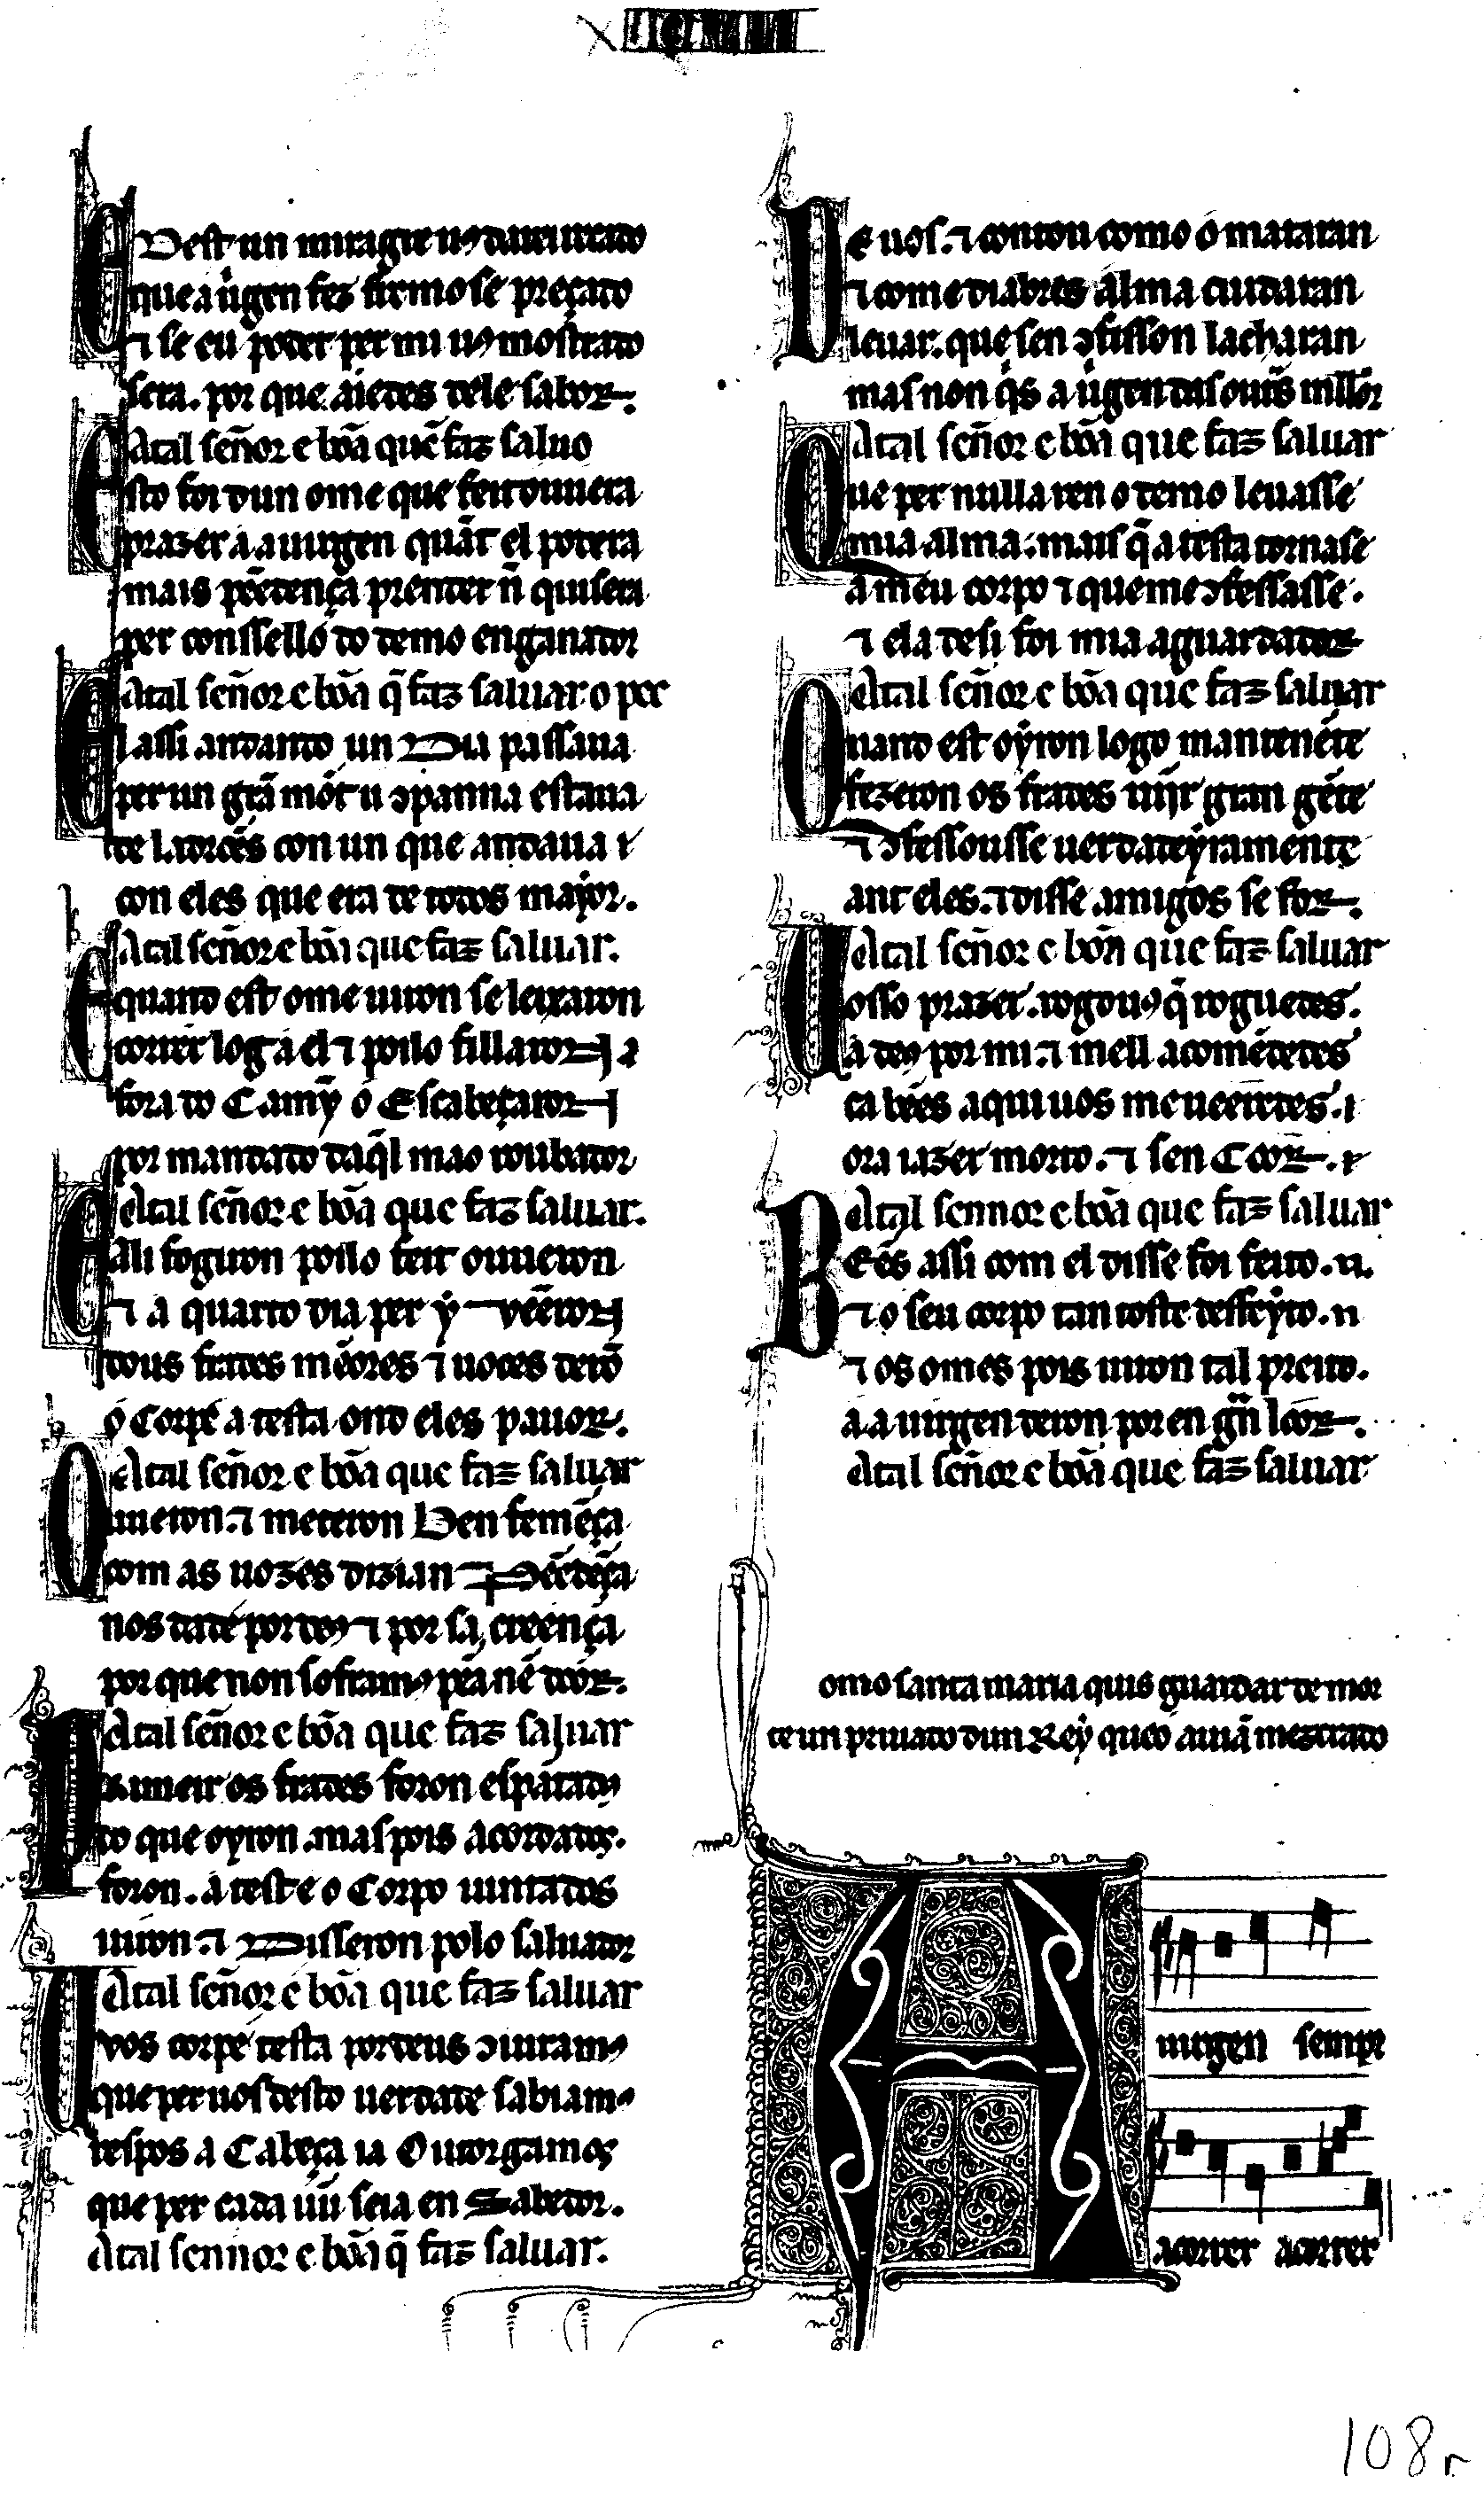 E Dest un miragre u9 direi uerdadeiro
que a uirgen fez fremoso e preçado
⁊ se eu poder per mi u9 mostrado
sera. por que aiedes dele sabor.
A tal señor e bõa que faz saluo
Esto foi dun ome que feit ouuera
prazer á a uirgen quãt el podera
mais pẽedença prender ñ quisera
per conssello do demo enganador
A tal señor e bõa q̃ faz saluar o pec
El assi andando un Dia passaua
per un grã mõt u ɔpanna estaua
de ladrões con un que andaua ⁊
con eles que era de todos mayor.
A tal señor e bõa que faz saluar.
E quand est ome uiron se leixaron
correr log á el ⁊ poilo fillaron
fora do Camỹ ó Escabeçaron
por mandado daq̃l mao roubador
A tal señor e bõa que faz saluar.
E ali foguron poilo feit ouueron
⁊ a quarto dia per ỹ vẽeron
dous frades mẽores ⁊ uozes derõ
ó Corp é a testa ond eles pauor.
A tal señor e bõa que faz saluar
Ouueron. ⁊ meteron ben femẽça
com as uozes dizian Pẽedẽça
nos dade por de9 ⁊ por sa creença
por que non sofram9 pẽa nẽ door.
A tal señor e bõa que faz saluar
Primeir os frades foron espãtad9
do que oyron. mas pois acordados.
foron. a test e o Corpo iuntados
uiron. ⁊ Disseron polo saluador
A tal señor e bõa que faz saluar
Uos corp e testa por deus ɔiuram9
que per nos desto uerdade sabiam9
respos a Cabeça ia Outorgamos
que per cada uũ seia en Sabedor.
A tal sennor e bõa q̃ faz saluar.
De uos. ⁊ contou como ó mataran
⁊ come diabres alma cuidaran
leuar. que sen ɔfisson la charan
mas non q̃s a uirgen
A tal señor e bõa que faz saluar
Que per nulla ren o demo leuasse
mia alma. mais q̃ a testa tornase
a meu corpo ⁊ que me ɔfessasse.
⁊ ela desi foi mia aguardador
A tal señor e bõa que faz saluar
Quando est oyron logo mantenẽte
fezeron os frades uĩjr gran gẽte
⁊ ɔfessousse uerdadeyramente
ant eles. ⁊ disse amigos se for.
A tal señor e bõa que faz saluar
Uosso prazer. rogou9 q̃ roguedes.
á de9 por mi. ⁊ mell acomẽdedes
ca bẽes aqui uos me ueeredes. ⁊
ora iazer morto. ⁊ sen Coor. ⁊
A tal sennor e bõa que faz saluar
Bees assi com el disse foi feito. n.
⁊ o seu corpo tan toste desfeyto. n
⁊ os omes pois uiron tal preito.
á a uirgen deron por en grã loor.
A tal señor e bõa que faz saluar
omo santa maria quis guardar de mor
te un priuado dun Rey que ó auiã mezcrado
A uirgen sempr
acorrer acorrer
108r